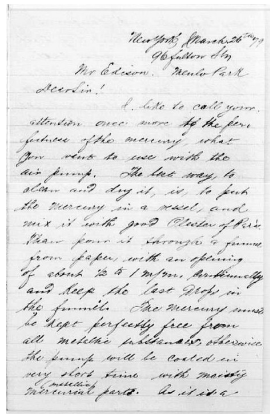 New York, March 26th 79
96 Fulton St
Mr Edison. Menlo Park
Dear Sir!
I like to call your
attention once more to the per
of the mercury, what
you want to use with the
air pump. The best way to
clean and dry it, is, to put
the mercury in a vessel, and
mix it with good Plaster of Paris
than pour it through a funnel
from paper, with an opening
of about ½ to 1 m/m,
and keep the last drops in
the funnels. The mercury must
be kept perfectly free from
all metallic substances, otherwise
the pump will be coated in
very short time with
metallic
mercurial parts. As it is a